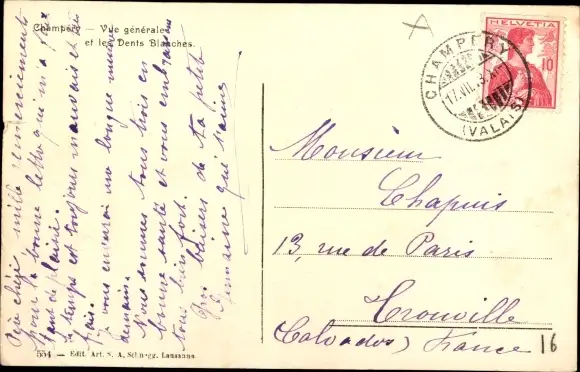 Champéry — Vue générale
et les Dents Blanches.
HELVETIA
10
CHAMPÉRY
17.VII.
(VALAIS)
Monsieur
Chapuis
13, rue de Paris
Trouville
Calvados) France
16
mille remerciements
pour ta bonne lettre qui m'a fait
tant de plaisir.
Le temps est toujours mauvais et très
frais.
Je vous enverrai une longue
demain.
Nous sommes tous trois en
bonne santé et vous embrassons
tous bien fort.
Gros baisers de ta petite
Germaine qui t'aime
554 — Edit. Art. S. A. Schnegg. Lausanne.